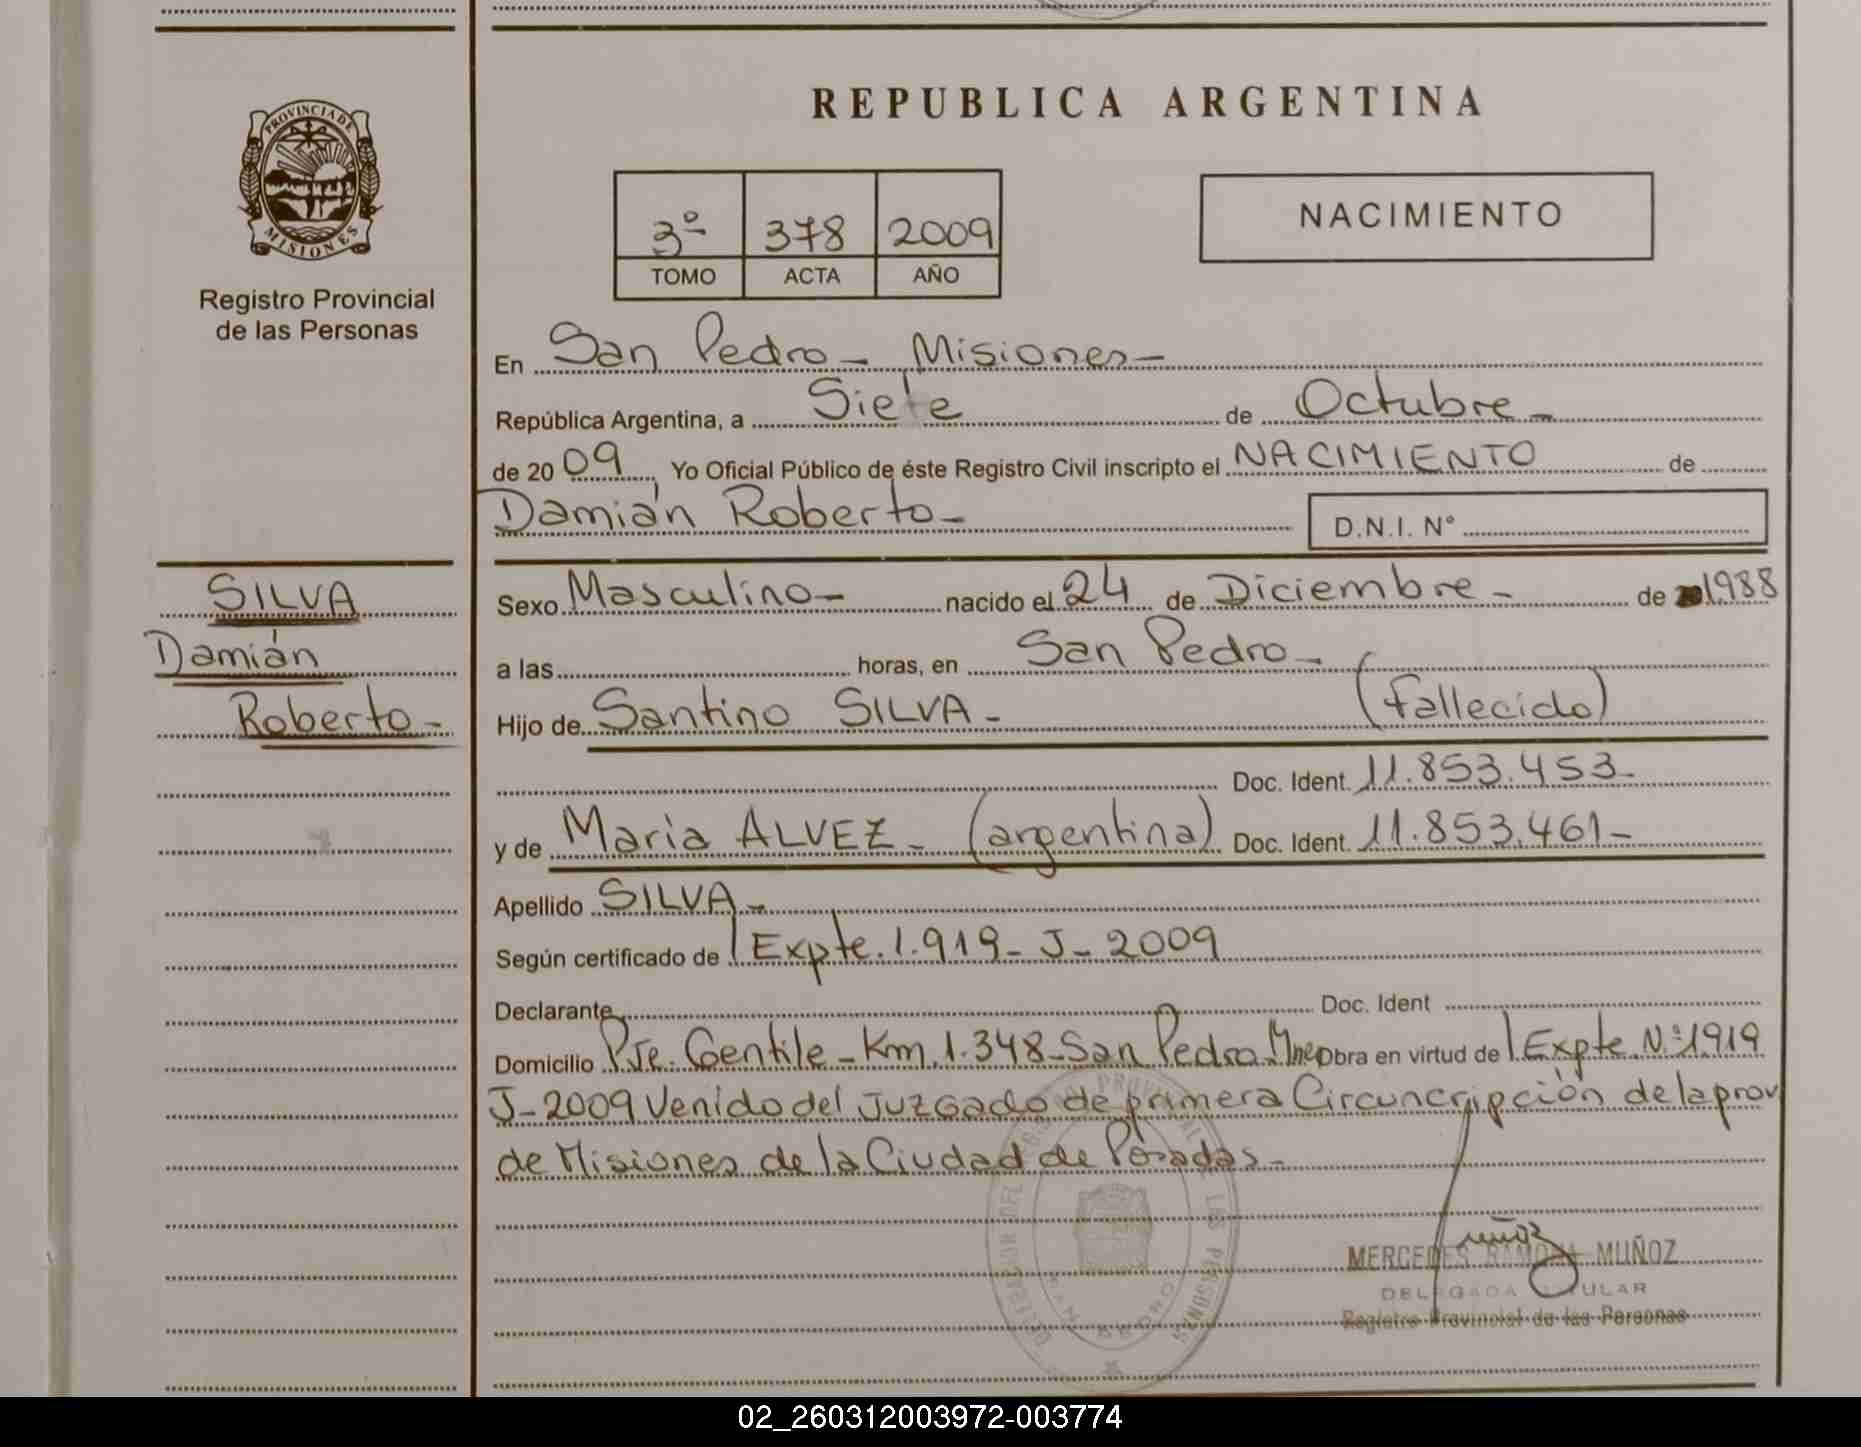 REPUBLICA ARGENTINA
PROVINCIA DE
MISIONES
Registro Provincial
de las Personas
3º 378 2009
TOMO ACTA AÑO
NACIMIENTO
En San Pedro - Misiones -
República Argentina, a Siete de Octubre -
de 2009 Yo Oficial Público de éste Registro Civil inscripto el NACIMIENTO de
Damián Roberto - D.N.I. Nº
SILVA
Damián
Roberto -
Sexo Masculino - nacido el 24 de Diciembre - de 1988
a las horas, en San Pedro -
Hijo de Santino SILVA - (Fallecido)
Doc. Ident. 11.853.453 -
y de Maria ALVEZ - (argentina) Doc. Ident. 11.853.461 -
Apellido SILVA -
Según certificado de Expte. 1.919 - J - 2009
Declarante Doc. Ident
Domicilio Pje. Gentile - Km. 1.348 - San Pedro Mnes Obra en virtud de Expte. Nº 1919
J - 2009 Venido del Juzgado de primera Circuncripción de la prov
de Misiones de la Ciudad de Posadas -
DELEGACION DEL REGISTRO PROVINCIAL DE LAS PERSONAS
SAN PEDRO
Muñoz
MERCEDES RAMONA MUÑOZ
DELEGADA TITULAR
Registro Provincial de las Personas
02_260312003972-003774